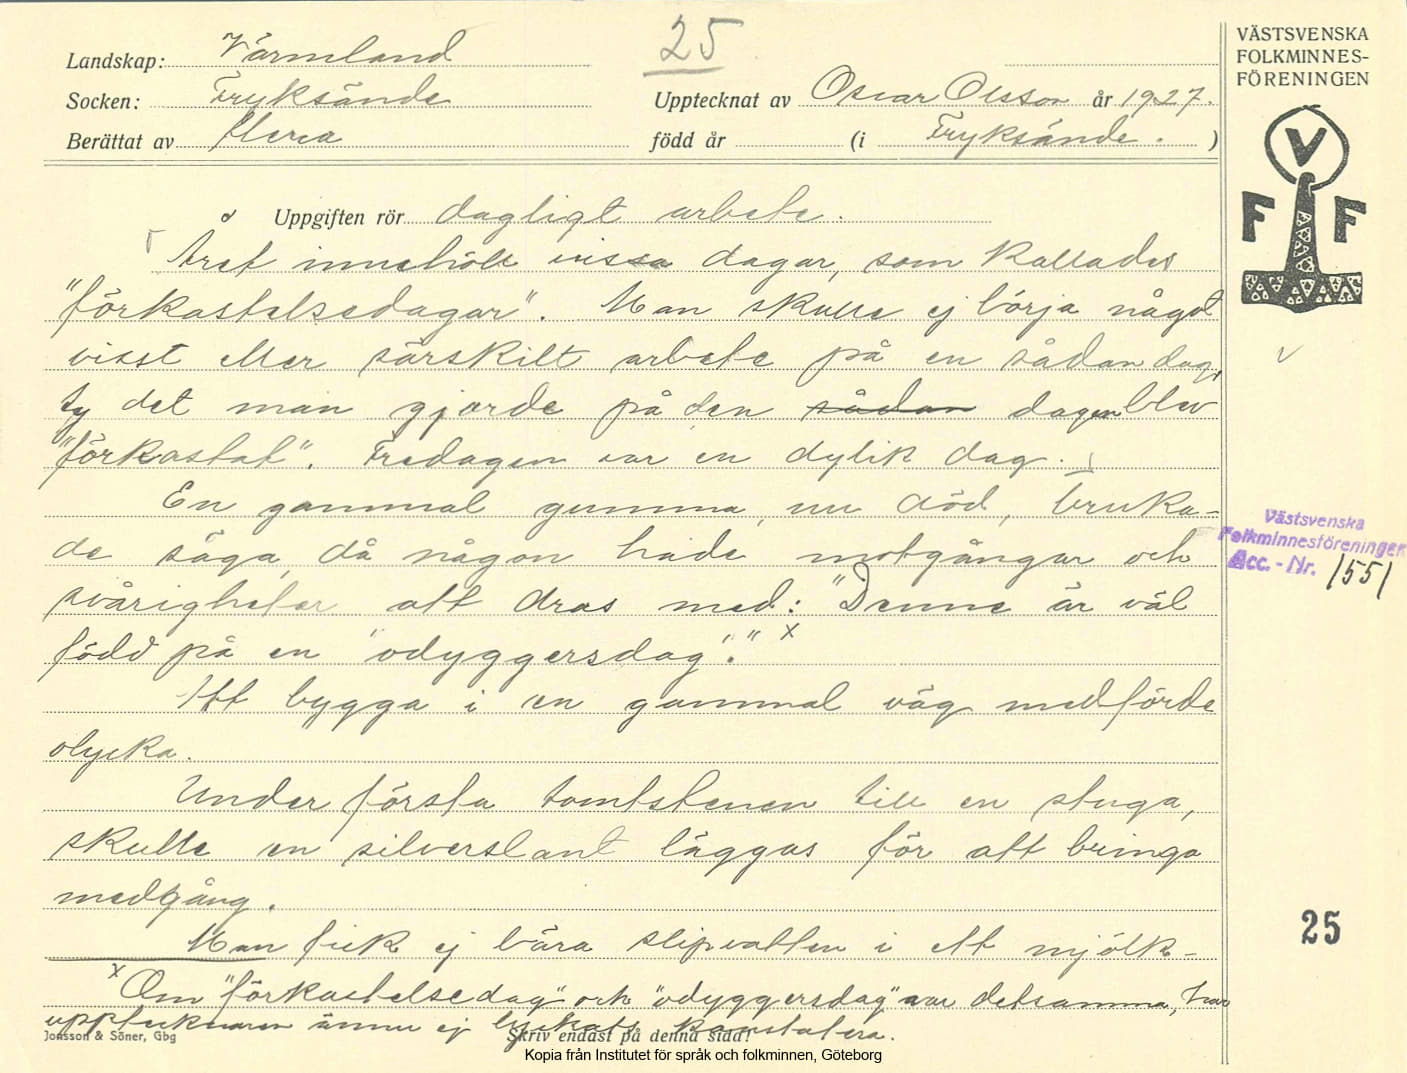 25
Landskap: Värmland
Socken: Fryksände
Upptecknat av Oscar Olsson år 1927.
Berättat av flera
född år (i Fryksände. )
Uppgiften rör dagligt arbete.
Året innehöll vissa dagar, som kallades
"förkastelsedagar". Man skulle ej börja något
visst eller särskilt arbete på en sådan dag,
ty det man gjorde på den sådan dagen blev
"förkastat". Fredagen var en dylik dag.
En gammal gumma, nu död, bruka-
de säga, då någon hade motgångar och
svårigheter att dras med: "Denne är väl
född på en "odyggersdag"." x
Att bygga i en gammal väg medförde
olycka.
Under första tomtstenen till en stuga,
skulle en silverslant läggas för att bringa
medgång.
Man fick ej bära slipvatten i ett mjölk-
x Om "förkastelsedag" och "odyggersdag" var detsamma, har
upptecknaren ännu ej lyckats konstatera.
Jonsson & Söner, Gbg
Skriv endast på denna sida!
Kopia från Institutet för språk och folkminnen, Göteborg
VÄSTSVENSKA
FOLKMINNES-
FÖRENINGEN
V
F F
Västsvenska
Folkminnesföreningen
Acc.-Nr. 1551
25